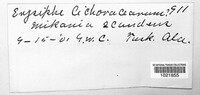 Erysiphe Cichoracearum. 911
Mikania scandens
9-15-'01 G.W.C. Tusk. Ala.
1021855